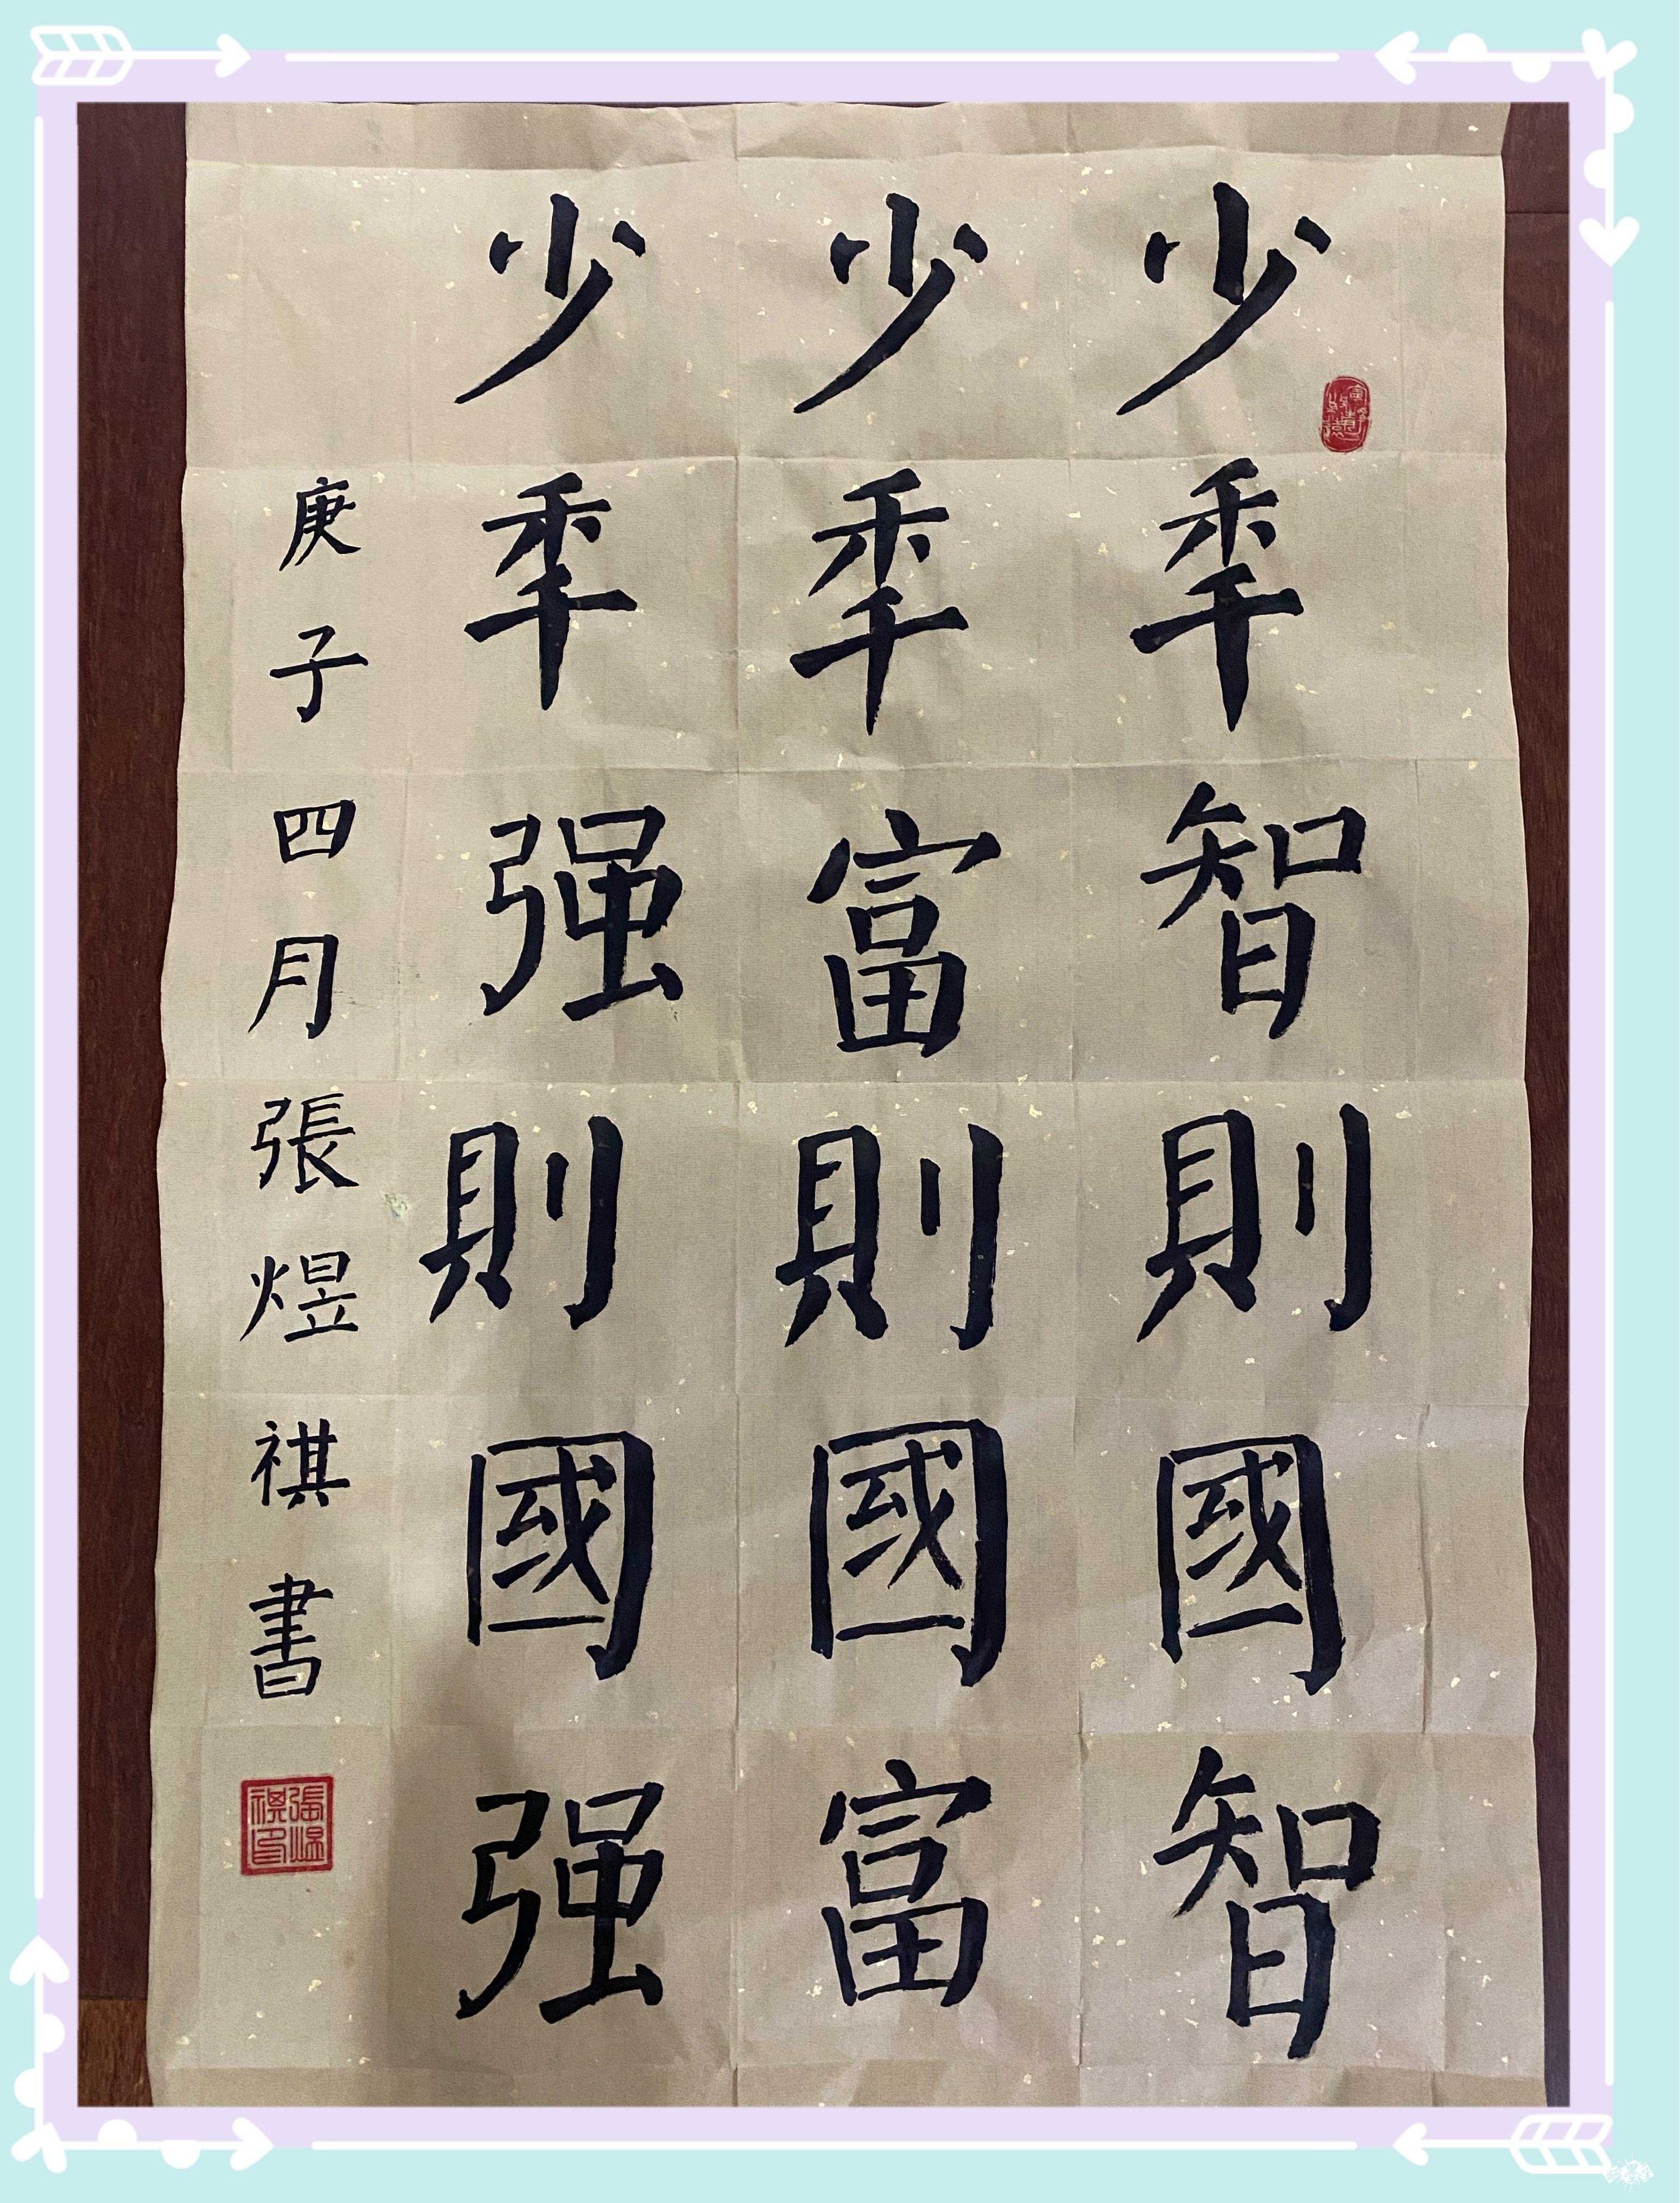 少秊智則國智
少秊富則國富
少秊强則國强
庚子四月張煜祺書
張煜祺印